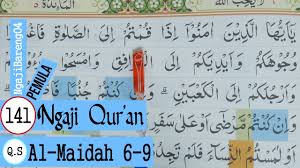 يٰٓاَيُّهَا الَّذِيْنَ اٰمَنُوْٓا اِذَا قُمْتُمْ اِلَى
وُجُوْهَكُمْ وَاَيْدِيَكُمْ اِلَى الْمَرَافِقِ وَامْسَحُوْا
وَاَرْجُلَكُمْ اِلَى الْكَعْبَيْنِ وَاِنْ كُنْتُمْ جُنُبًا
وَاِنْ كُنْتُمْ مَّرْضٰٓى اَوْ عَلٰى سَفَرٍ
لٰمَسْتُمُ النِّسَاۤءَ فَلَمْ تَجِدُوْا
NgajiBareng04
PEMULA
141 Ngaji Qur'an
Q.S Al-Maidah 6-9